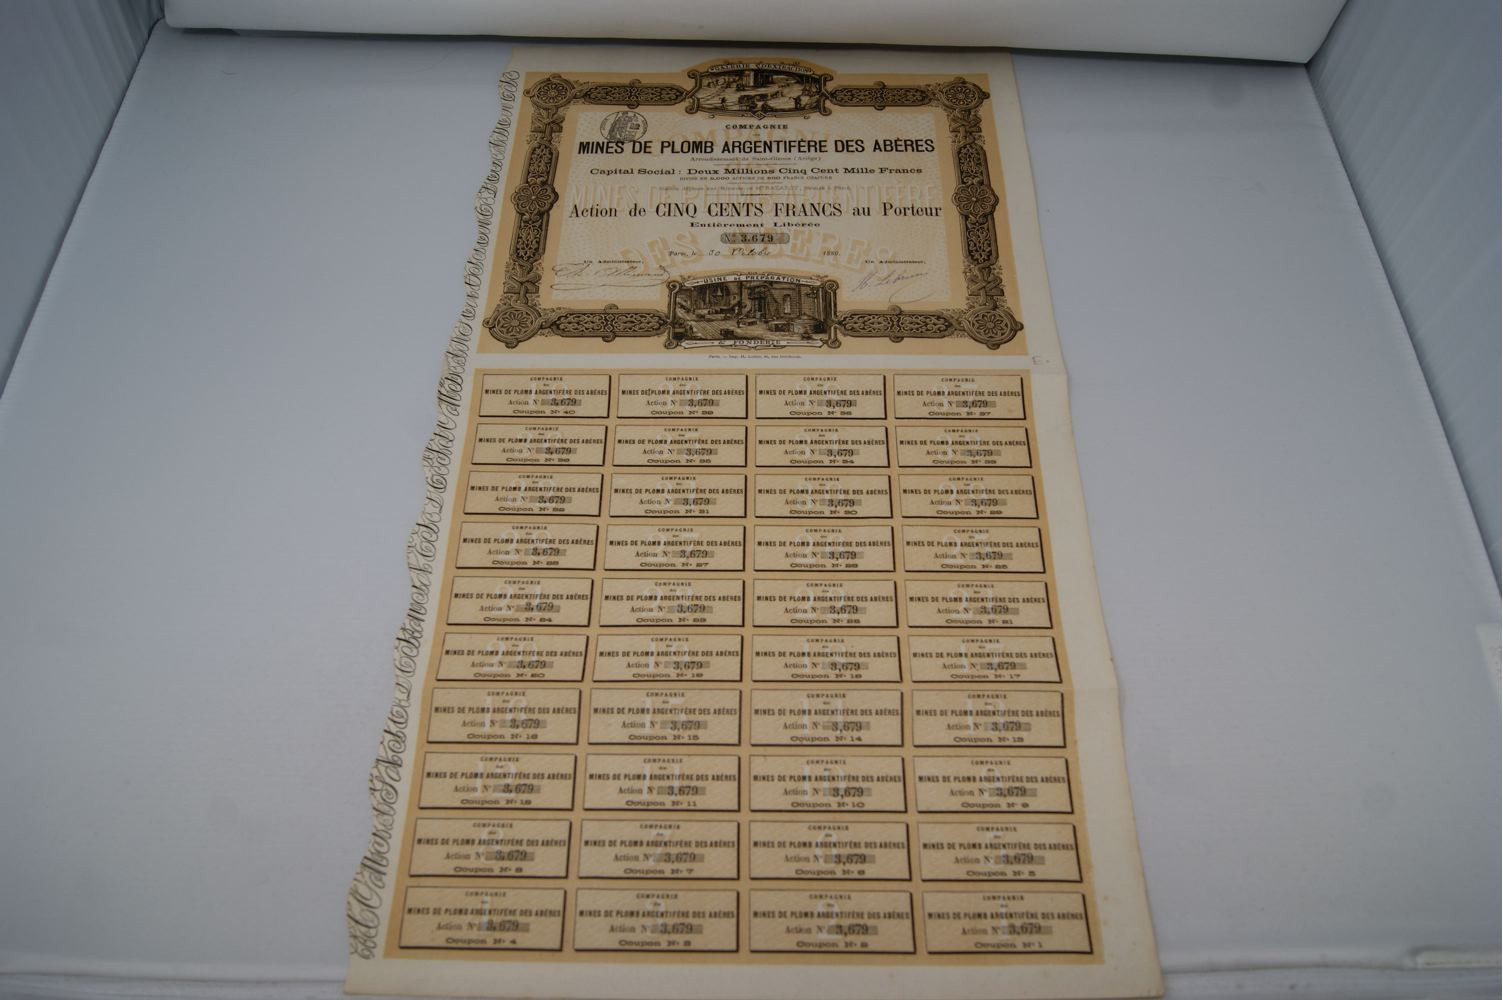 GALERIE D'EXTRACTION
COMPAGNIE
MINES DE PLOMB ARGENTIFÈRE DES ABÈRES
Arrondissement de Saint-Girons (Ariège)
Capital Social : Deux Millions Cinq Cent Mille Francs
DIVISÉ EN 5,000 ACTIONS DE 500 FRANCS CHACUNE
Action de CINQ CENTS FRANCS au Porteur
Entièrement Libérée
N° 3,679
Paris, le 30 Octobre 1880.
Un Administrateur, Un Administrateur,
USINE DE PRÉPARATION
& FONDERIE
COMPAGNIE COMPAGNIE COMPAGNIE COMPAGNIE
des des des des
MINES DE PLOMB ARGENTIFÈRE DES ABÈRES MINES DE PLOMB ARGENTIFÈRE DES ABÈRES MINES DE PLOMB ARGENTIFÈRE DES ABÈRES MINES DE PLOMB ARGENTIFÈRE DES ABÈRES
Action N° 3,679 Action N° 3,679 Action N° 3,679 Action N° 3,679
Coupon N° 40 Coupon N° 39 Coupon N° 38 Coupon N° 37
COMPAGNIE COMPAGNIE COMPAGNIE COMPAGNIE
des des des des
MINES DE PLOMB ARGENTIFÈRE DES ABÈRES MINES DE PLOMB ARGENTIFÈRE DES ABÈRES MINES DE PLOMB ARGENTIFÈRE DES ABÈRES MINES DE PLOMB ARGENTIFÈRE DES ABÈRES
Action N° 3,679 Action N° 3,679 Action N° 3,679 Action N° 3,679
Coupon N° 36 Coupon N° 35 Coupon N° 34 Coupon N° 33
COMPAGNIE COMPAGNIE COMPAGNIE COMPAGNIE
des des des des
MINES DE PLOMB ARGENTIFÈRE DES ABÈRES MINES DE PLOMB ARGENTIFÈRE DES ABÈRES MINES DE PLOMB ARGENTIFÈRE DES ABÈRES MINES DE PLOMB ARGENTIFÈRE DES ABÈRES
Action N° 3,679 Action N° 3,679 Action N° 3,679 Action N° 3,679
Coupon N° 32 Coupon N° 31 Coupon N° 30 Coupon N° 29
COMPAGNIE COMPAGNIE COMPAGNIE COMPAGNIE
des des des des
MINES DE PLOMB ARGENTIFÈRE DES ABÈRES MINES DE PLOMB ARGENTIFÈRE DES ABÈRES MINES DE PLOMB ARGENTIFÈRE DES ABÈRES MINES DE PLOMB ARGENTIFÈRE DES ABÈRES
Action N° 3,679 Action N° 3,679 Action N° 3,679 Action N° 3,679
Coupon N° 28 Coupon N° 27 Coupon N° 26 Coupon N° 25
COMPAGNIE COMPAGNIE COMPAGNIE COMPAGNIE
des des des des
MINES DE PLOMB ARGENTIFÈRE DES ABÈRES MINES DE PLOMB ARGENTIFÈRE DES ABÈRES MINES DE PLOMB ARGENTIFÈRE DES ABÈRES MINES DE PLOMB ARGENTIFÈRE DES ABÈRES
Action N° 3,679 Action N° 3,679 Action N° 3,679 Action N° 3,679
Coupon N° 24 Coupon N° 23 Coupon N° 22 Coupon N° 21
COMPAGNIE COMPAGNIE COMPAGNIE COMPAGNIE
des des des des
MINES DE PLOMB ARGENTIFÈRE DES ABÈRES MINES DE PLOMB ARGENTIFÈRE DES ABÈRES MINES DE PLOMB ARGENTIFÈRE DES ABÈRES MINES DE PLOMB ARGENTIFÈRE DES ABÈRES
Action N° 3,679 Action N° 3,679 Action N° 3,679 Action N° 3,679
Coupon N° 20 Coupon N° 19 Coupon N° 18 Coupon N° 17
COMPAGNIE COMPAGNIE COMPAGNIE COMPAGNIE
des des des des
MINES DE PLOMB ARGENTIFÈRE DES ABÈRES MINES DE PLOMB ARGENTIFÈRE DES ABÈRES MINES DE PLOMB ARGENTIFÈRE DES ABÈRES MINES DE PLOMB ARGENTIFÈRE DES ABÈRES
Action N° 3,679 Action N° 3,679 Action N° 3,679 Action N° 3,679
Coupon N° 16 Coupon N° 15 Coupon N° 14 Coupon N° 13
COMPAGNIE COMPAGNIE COMPAGNIE COMPAGNIE
des des des des
MINES DE PLOMB ARGENTIFÈRE DES ABÈRES MINES DE PLOMB ARGENTIFÈRE DES ABÈRES MINES DE PLOMB ARGENTIFÈRE DES ABÈRES MINES DE PLOMB ARGENTIFÈRE DES ABÈRES
Action N° 3,679 Action N° 3,679 Action N° 3,679 Action N° 3,679
Coupon N° 12 Coupon N° 11 Coupon N° 10 Coupon N° 9
COMPAGNIE COMPAGNIE COMPAGNIE COMPAGNIE
des des des des
MINES DE PLOMB ARGENTIFÈRE DES ABÈRES MINES DE PLOMB ARGENTIFÈRE DES ABÈRES MINES DE PLOMB ARGENTIFÈRE DES ABÈRES MINES DE PLOMB ARGENTIFÈRE DES ABÈRES
Action N° 3,679 Action N° 3,679 Action N° 3,679 Action N° 3,679
Coupon N° 8 Coupon N° 7 Coupon N° 6 Coupon N° 5
COMPAGNIE COMPAGNIE COMPAGNIE COMPAGNIE
des des des des
MINES DE PLOMB ARGENTIFÈRE DES ABÈRES MINES DE PLOMB ARGENTIFÈRE DES ABÈRES MINES DE PLOMB ARGENTIFÈRE DES ABÈRES MINES DE PLOMB ARGENTIFÈRE DES ABÈRES
Action N° 3,679 Action N° 3,679 Action N° 3,679 Action N° 3,679
Coupon N° 4 Coupon N° 3 Coupon N° 2 Coupon N° 1